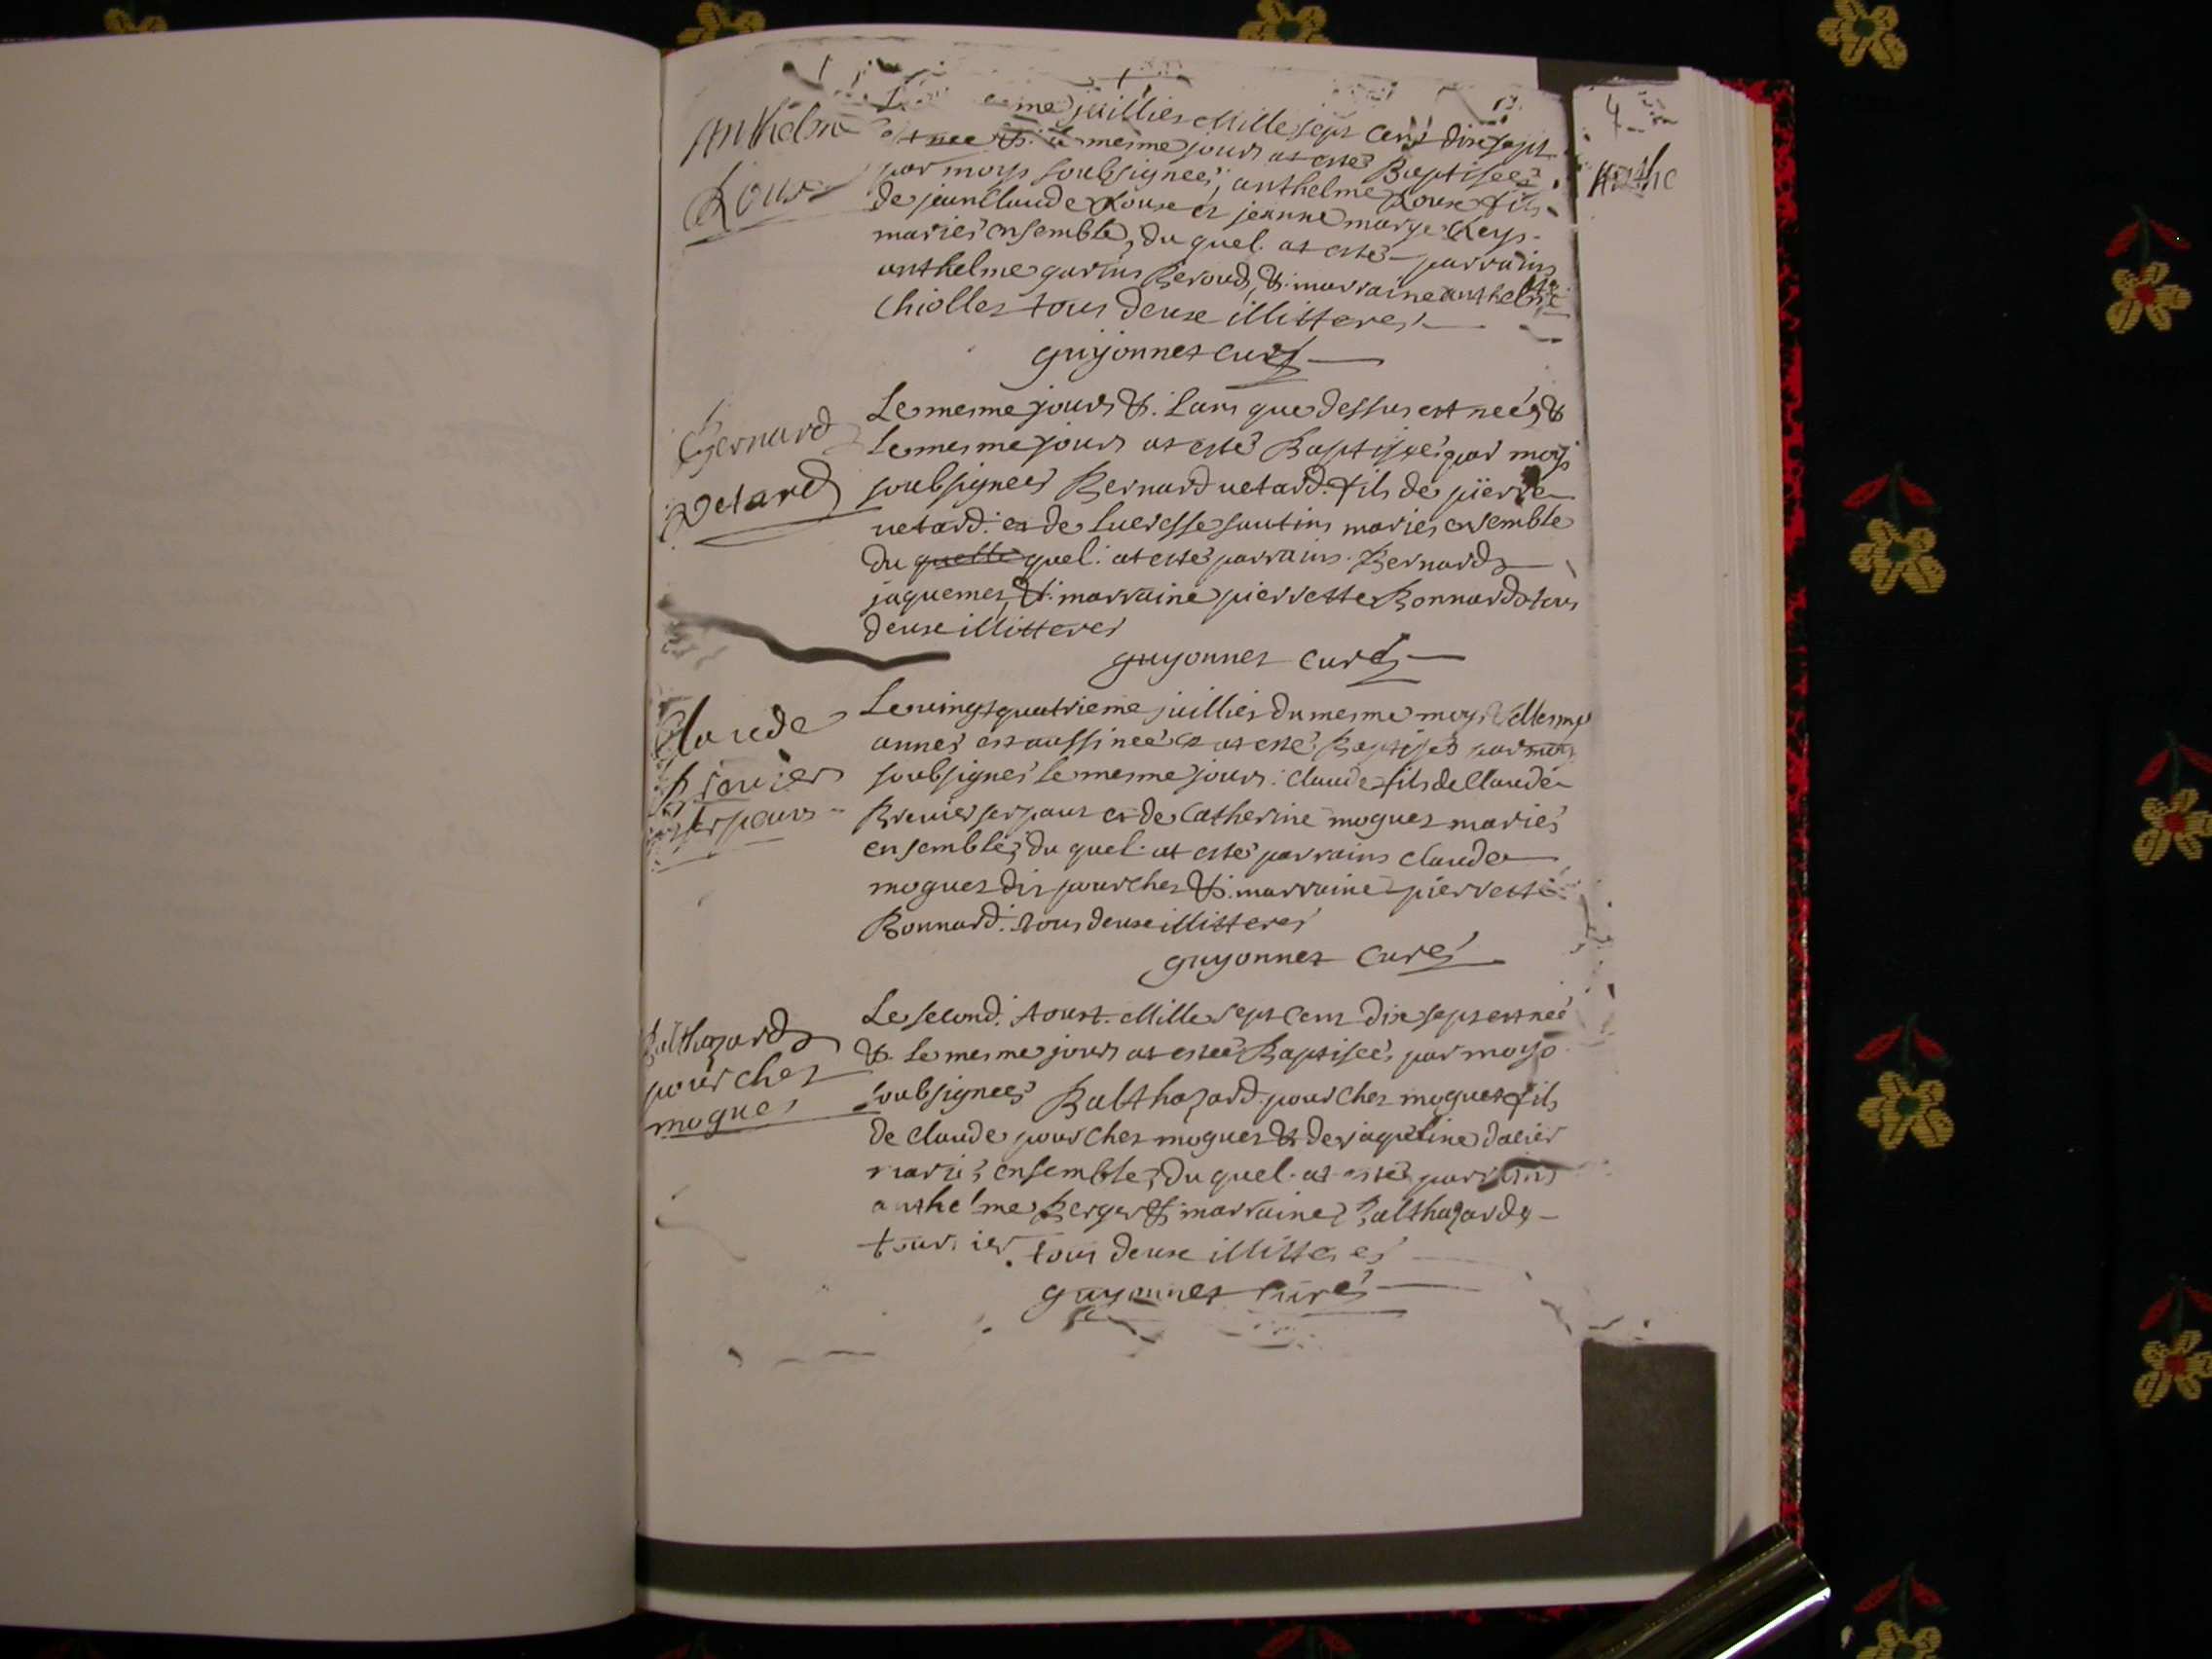 Anthelme
Roux
me juillier Mille sept cens dix sept
est nee & le mesme jours at esté Baptiseé
par moys soubsigneé, anthelme Roux fils
de jean Claude Roux et jeanne marge Reys
mariés ensemble, du quel. at esté parrains
anthelme garins Beroud, &. marraine anthelme
Chiollet tous deux illitteres
guyonnet curé
Bernard
vetard
Le mesme jours &. Lans que dessus est neé, &
Le mesme jours at esté Baptiseé par moys
soubsigneés Bernard vetard. fils de pierre
vetard. et de Lucresse sautins mariés ensemble
du quelle quel. at esté parrains. Bernard
jaquemet, &. marraine pierrette Bonnard tous
deux illitteres
guyonnet curé
Claude
Brevier
serpaus
Le vingt quatrieme juillier du mesme moys & mesme
anneé est aussi neé et at esté Baptiseé par moy
soubsigneé le mesme jours. Claude fils de Claude
Brevier serpaus et de Catherine moguet mariés
ensemble, du quel. at esté parrains claude
moguet dit pourchet &. marraine pierrette
Bonnard. tous deux illitteres
guyonnet Curé
Balthazard
pourchet
moguet
Le second. Aoust. Mille sept cens dix sept est neé
&. Le mesme jours at esteé Baptiseé par moys
soubsigneés Balthazard. pourchet moguet fils
de claude pourchet moguet & de jaqueline dacier
mariés ensemble, du quel. at esté parrains
anthelme Berger &. marraine Balthazarde
tournier. tous deux illitteres
guyonnet Curé
4
Anthe